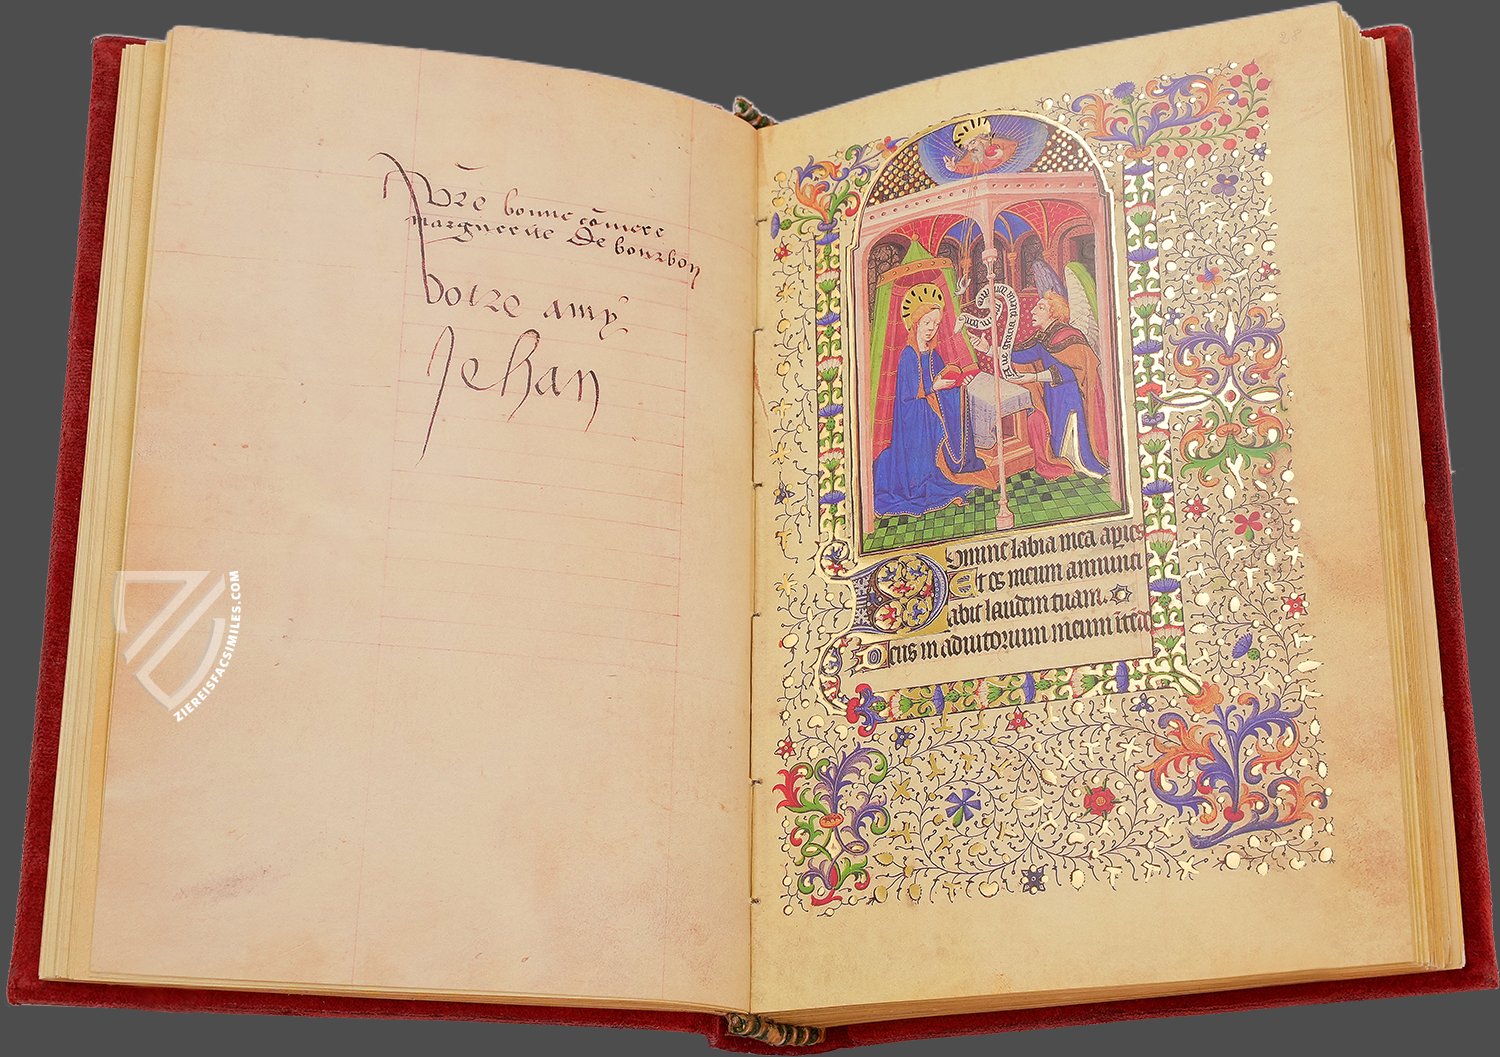 Vr̄e bonne cōmere
marguerite De bourbon
votre amy
Jehan
28
Ave gracia
Domine labia mea aperies
Et os meum annunci
abit laudem tuam.
Deus in adiutorium meum
ZIEREISFACSIMILES.COM